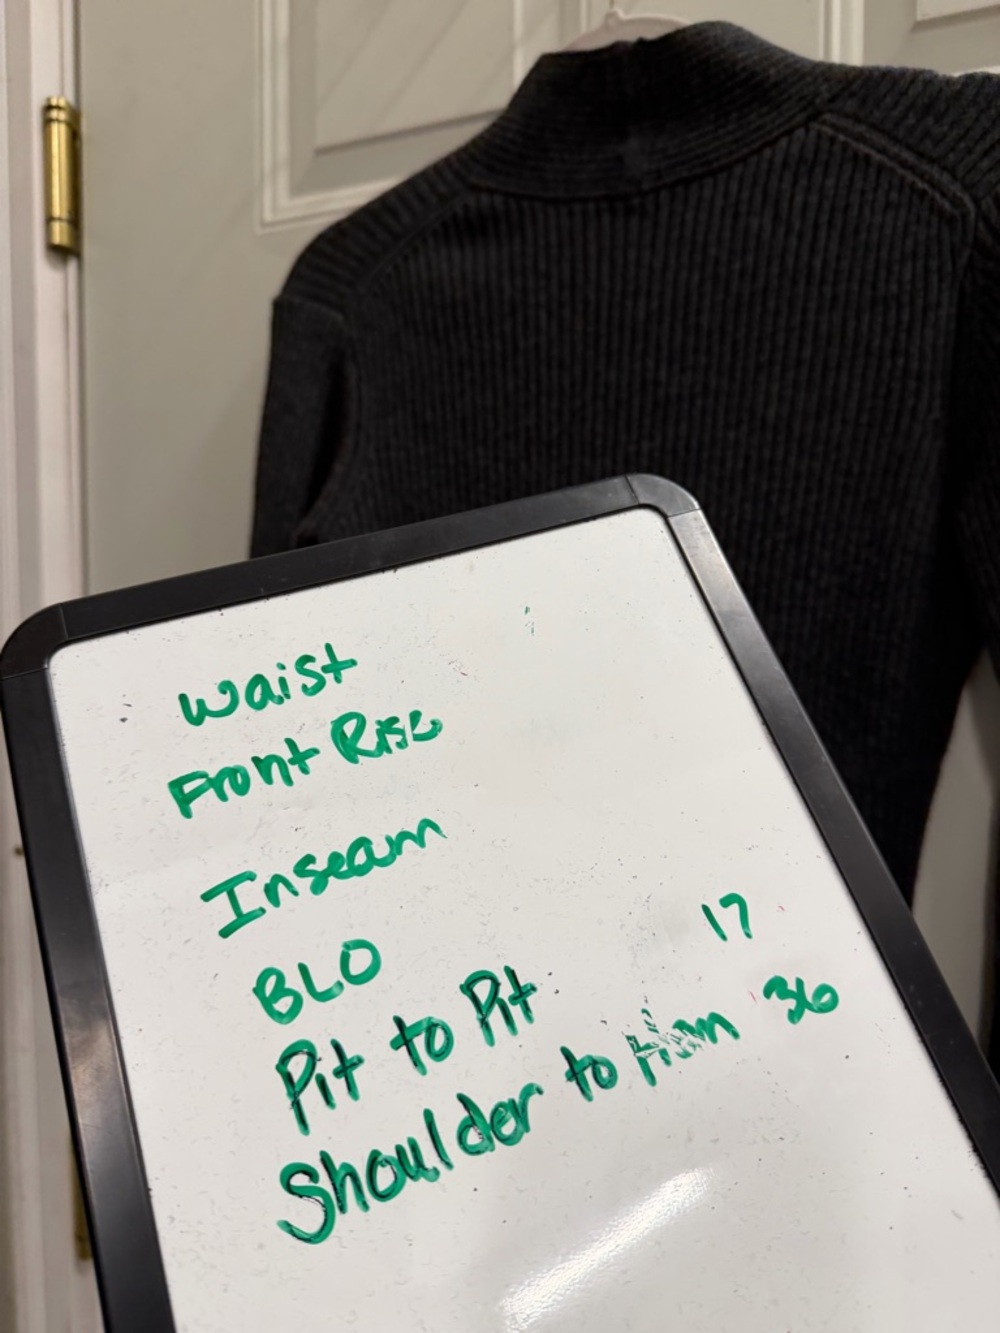 Waist
Front Rise
Inseam
BLO
Pit to Pit 17
Shoulder to Hem 36